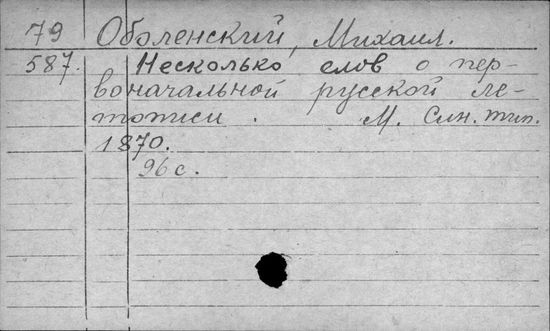 79 Оболенский, Михаил.
587. Несколько слов о пер-
воначальной русской ле-
тописи. М. Син. тип.
1870.
96 с.